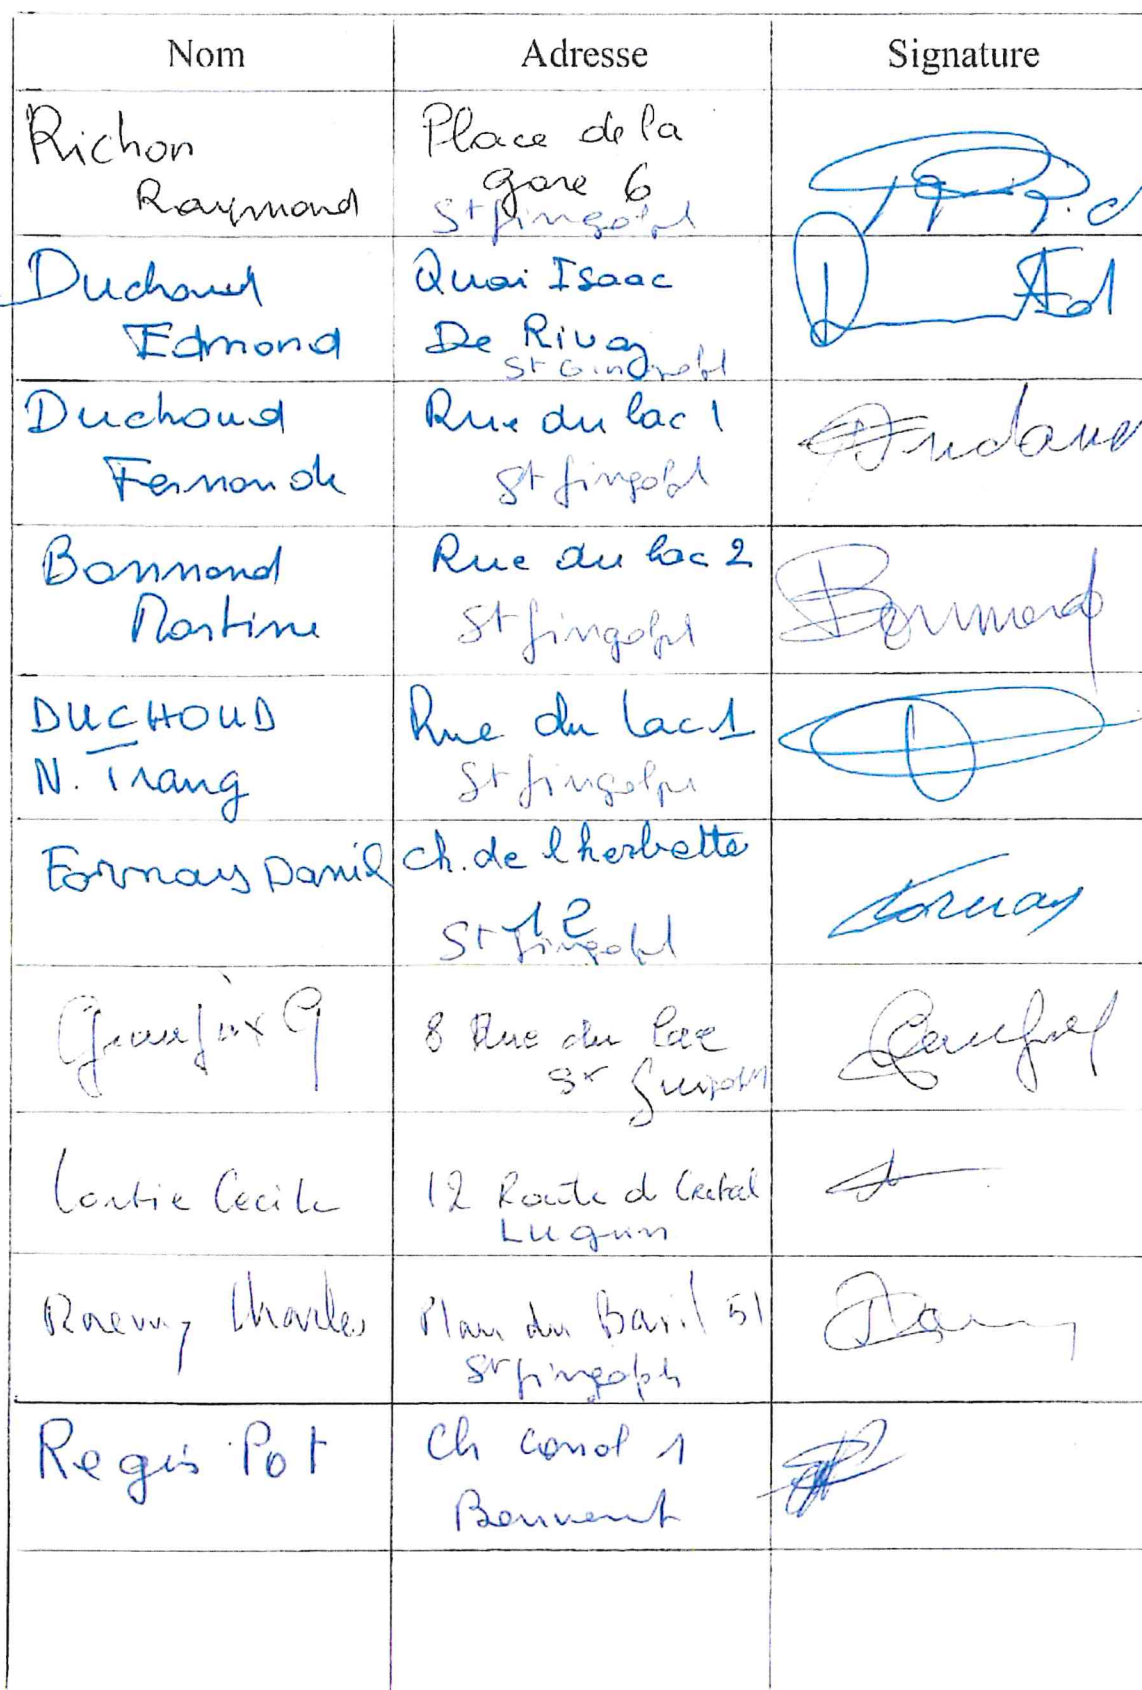 Nom Adresse Signature
Richon
Raymond
Place de la
gare 6
St Gingolph
Duchoud
Edmond
Quai Isaac
De Rivaz
St Gingolph
Duchoud
Fernande
Rue du lac 1
St Gingolph
Bonnand
Martine
Rue du lac 2
St Gingolph
Bonnand
DUCHOUD
N. Trang
Rue du lac 1
St Gingolph
Fornay Daniel
ch. de l'herbette
12
St Gingolph
Fornay
8 Rue du Lac
St Gingolph
Cecile
12 Route de
Lugrin
Charles
Plan du Baril 51
St Gingolph
Regis Pot
Ch canal 1
Bouveret